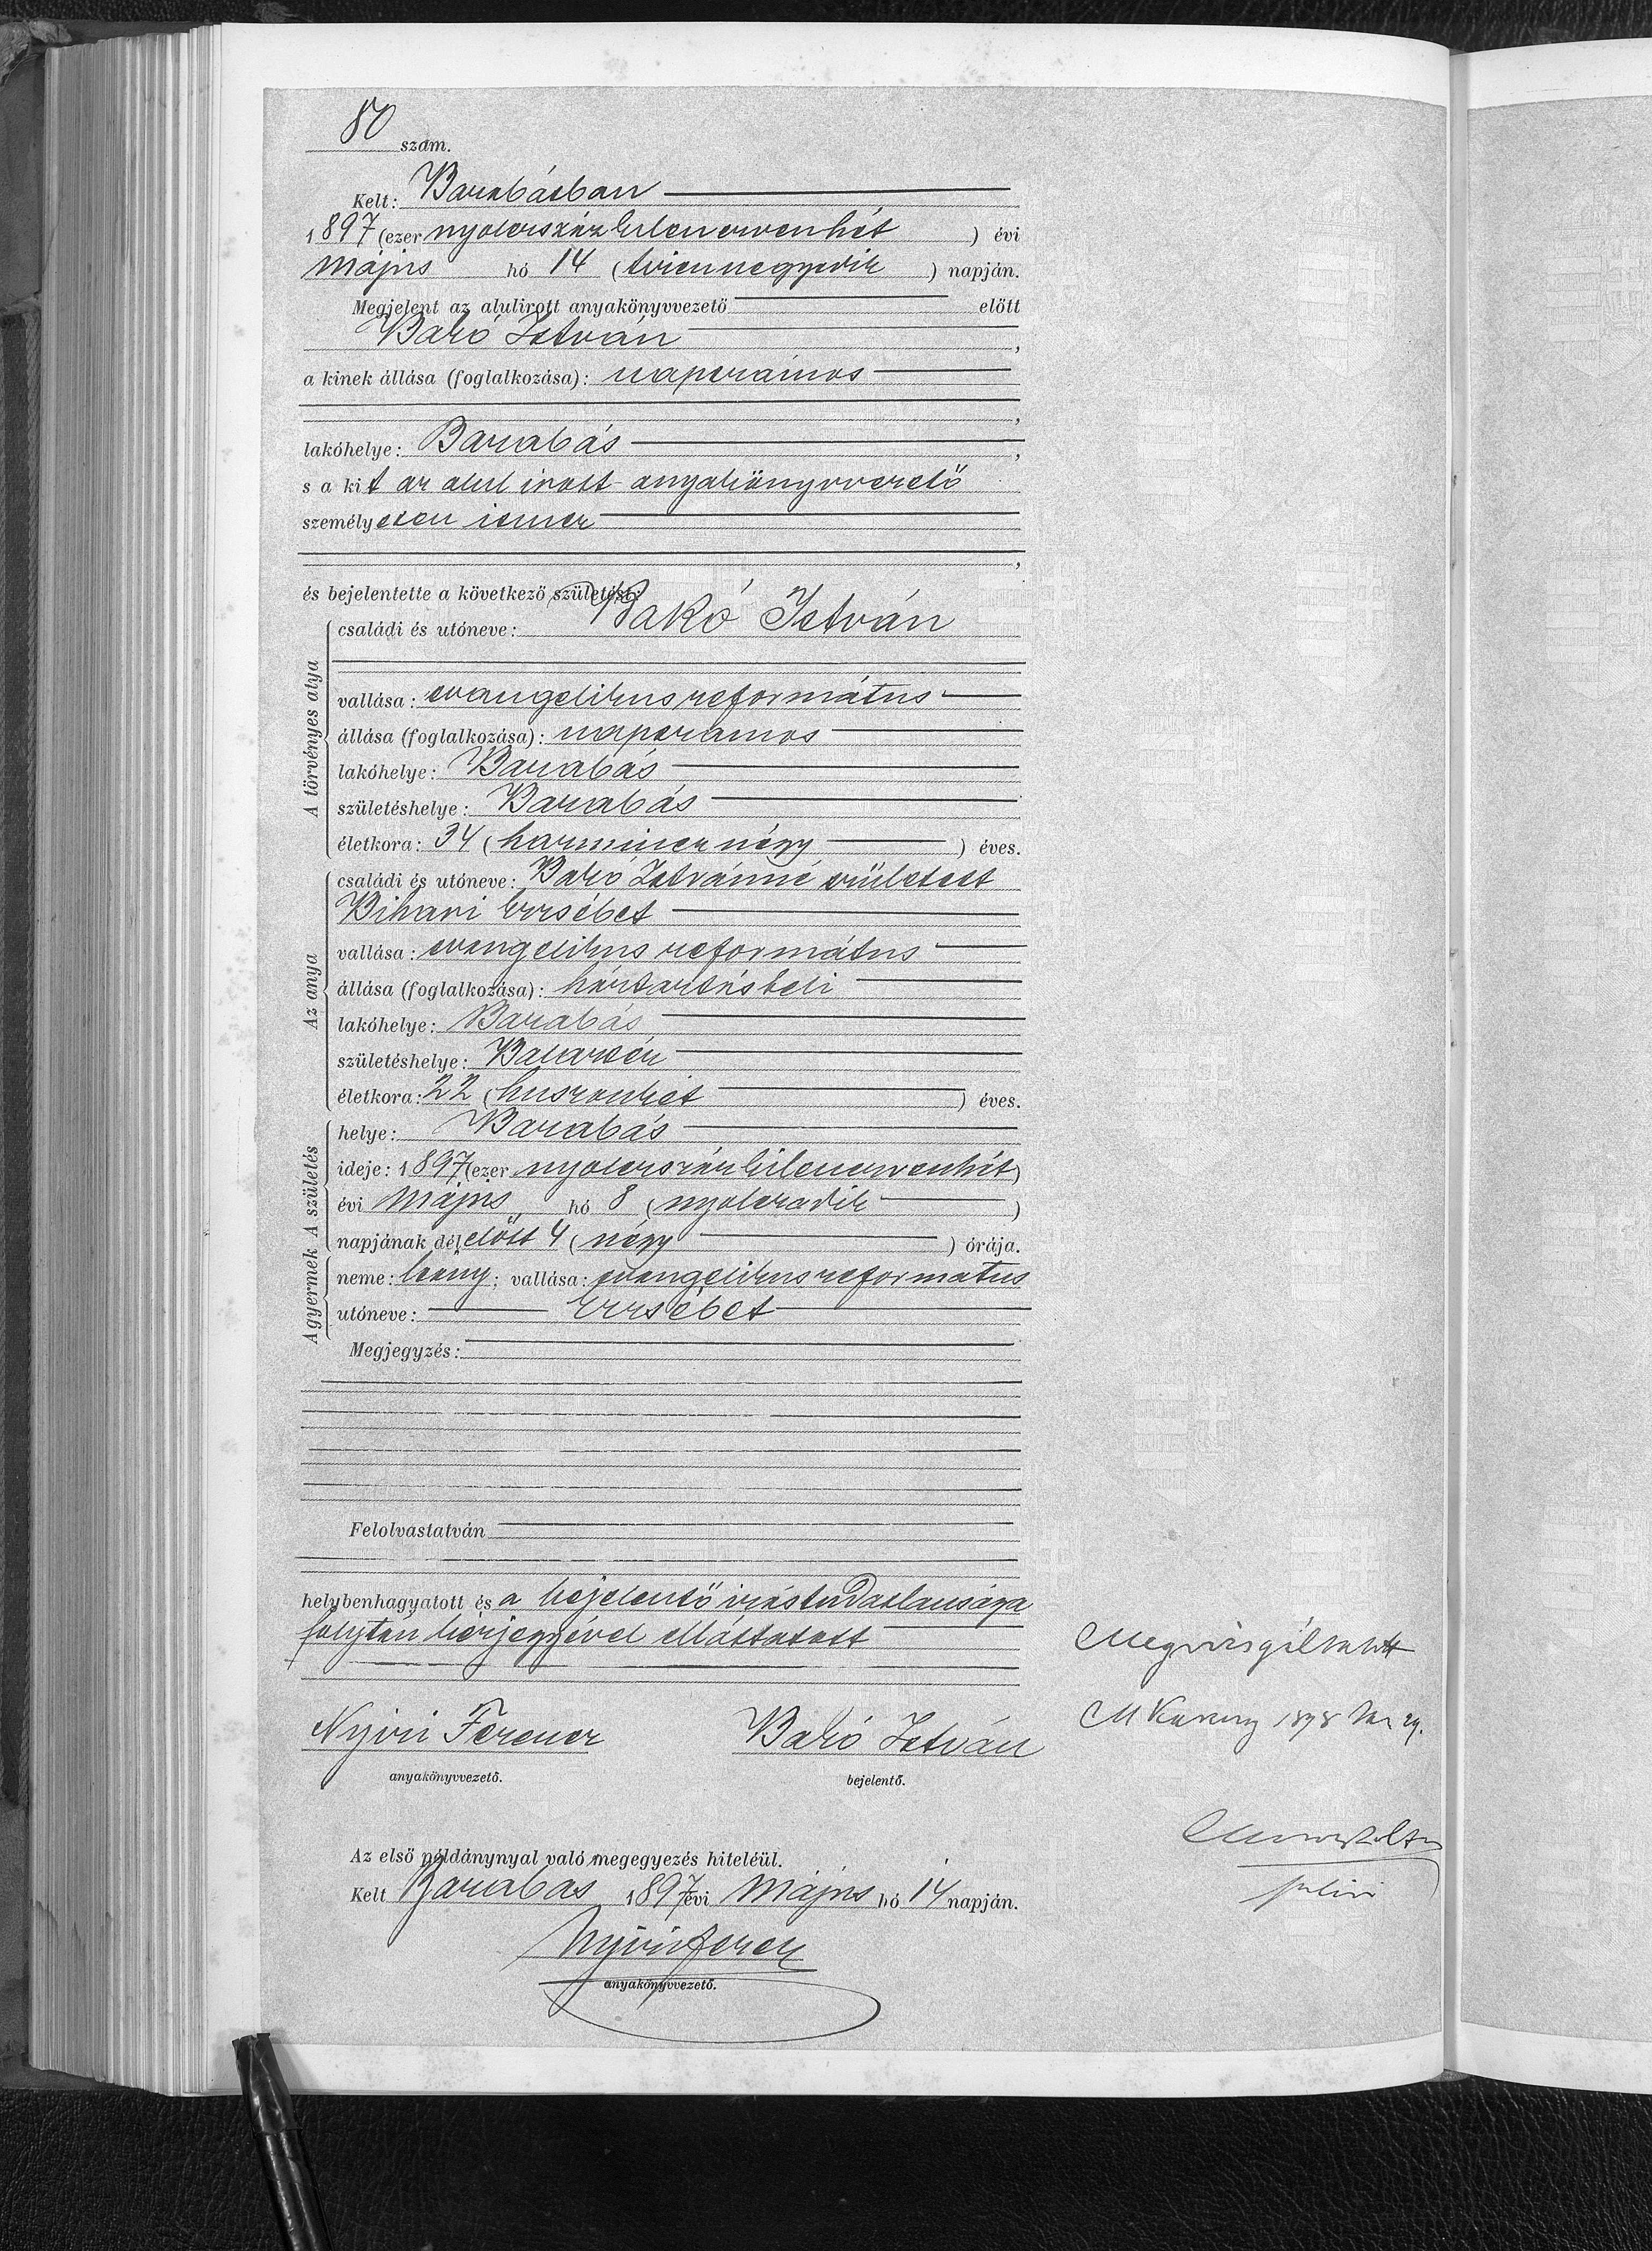 80 szám.
Kelt: Barabásban
1897 (ezer nyolcszáz kilencvenhét) évi
május hó 14 (tizennegyedik) napján.
Megjelent az alulirott anyakönyvvezető előtt
Bakó István,
a kinek állása (foglalkozása): napszámos
,
lakóhelye: Barabás,
s a kit az alul irott anyakönyvvezető
személyesen ismer
,
és bejelentette a következő születést:
A törvényes atya
családi és utóneve: Bakó István
vallása: evangelikus református
állása (foglalkozása): napszámos
lakóhelye: Barabás
születéshelye: Barabás
életkora: 34 (harmincz négy) éves.
Az anya
családi és utóneve: Bakó Istvánné született
Bihari Erzsébet
vallása: evangelikus református
állása (foglalkozása): háztartásbeli
lakóhelye: Barabás
születéshelye:
életkora: (huszonhét) éves.
A születés
helye: Barabás
ideje: 1897 (ezer nyolcszáz kilencvenhét)
évi május hó 8 (nyolczadik)
napjának délelőtt 4 (négy) órája.
A gyermek
neme: leány; vallása: evangelikus reformatus
utóneve: Erzsébet
Megjegyzés:
Felolvastatván
helybenhagyatott és a bejelentő irástudatlansága
folytán kézjegyével elláttatott
Nyiri Ferencz Bakó István
anyakönyvvezető. bejelentő.
Megvizsgáltatott
1898
Az első példánynyal való megegyezés hiteléül.
Kelt Barabas 1897 évi május hó 14 napján.
Nyiri Ferencz
anyakönyvvezető.